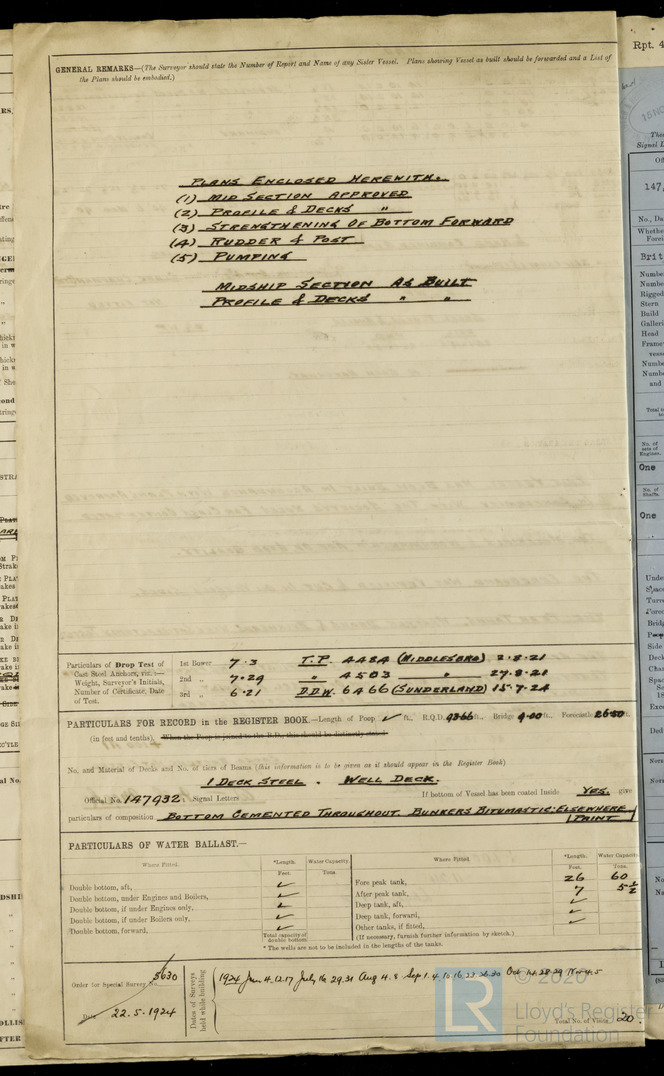 GENERAL REMARKS—(The Surveyor should state the Number of Report and Name of any Sister Vessel. Plans shewing Vessel as built should be forwarded and a List of
the Plans should be embodied.)
PLANS ENCLOSED HEREWITH.
(1) MID SECTION APPROVED
(2) PROFILE & DECKS "
(3) STRENGTHENING OF BOTTOM FORWARD
(4) RUDDER & POST
(5) PUMPING
MIDSHIP SECTION AS BUILT
PROFILE & DECKS " "
Particulars of Drop Test of
Cast Steel Anchors, viz.:—
Weight, Surveyor's Initials,
Number of Certificate, Date
of Test.
1st Bower 7.3 T.P. 4484 (MIDDLESBRO) 2.8.21
2nd " 7.29 " 4503 " 27.8.21
3rd " 6.21 D.D.W. 6466 (SUNDERLAND) 15.7.24
PARTICULARS FOR RECORD in the REGISTER BOOK.—Length of Poop ✓ ft., R.Q.D. ft., Bridge ft., Forecastle ft.
(in feet and tenths). When the Poop is joined to the B.D., this should be distinctly stated
No. and Material of Decks and No. of tiers of Beams (this information is to be given as it should appear in the Register Book)
1 DECK STEEL. WELL DECK.
Official No. 147932. Signal Letters If bottom of Vessel has been coated Inside YES. give
particulars of composition BOTTOM CEMENTED THROUGHOUT. BUNKERS BITUMASTIC: ELSEWHERE
PAINT
PARTICULARS OF WATER BALLAST.—
Where Fitted. *Length. Water Capacity. Where Fitted *Length. Water Capacity
Feet. Tons. Feet. Tons.
Double bottom, aft, ✓
Double bottom, under Engines and Boilers, ✓
Double bottom, if under Engines only, ✓
Double bottom, if under Boilers only, ✓
Double bottom, forward, ✓
Total capacity of
double bottom
Fore peak tank, 26 60
After peak tank, 7 5½
Deep tank, aft, ✓
Deep tank, forward, ✓
Other tanks, if fitted,
(If necessary, furnish further information by sketch.)
* The wells are not to be included in the lengths of the tanks.
Order for Special Survey No. 5630
Date 22.5.1924
Dates of Surveys
held while building
1924 Jun 4.12.17 July 16 29.31 Aug 4.8 Sep 1.4.10.16 22.26.30 Oct 14.28.29 Nov 4.5
Total No. of Visits 20.
© 2020
LR
Lloyd's Register
Foundation
Rpt. 4
147,
Brit
One
One